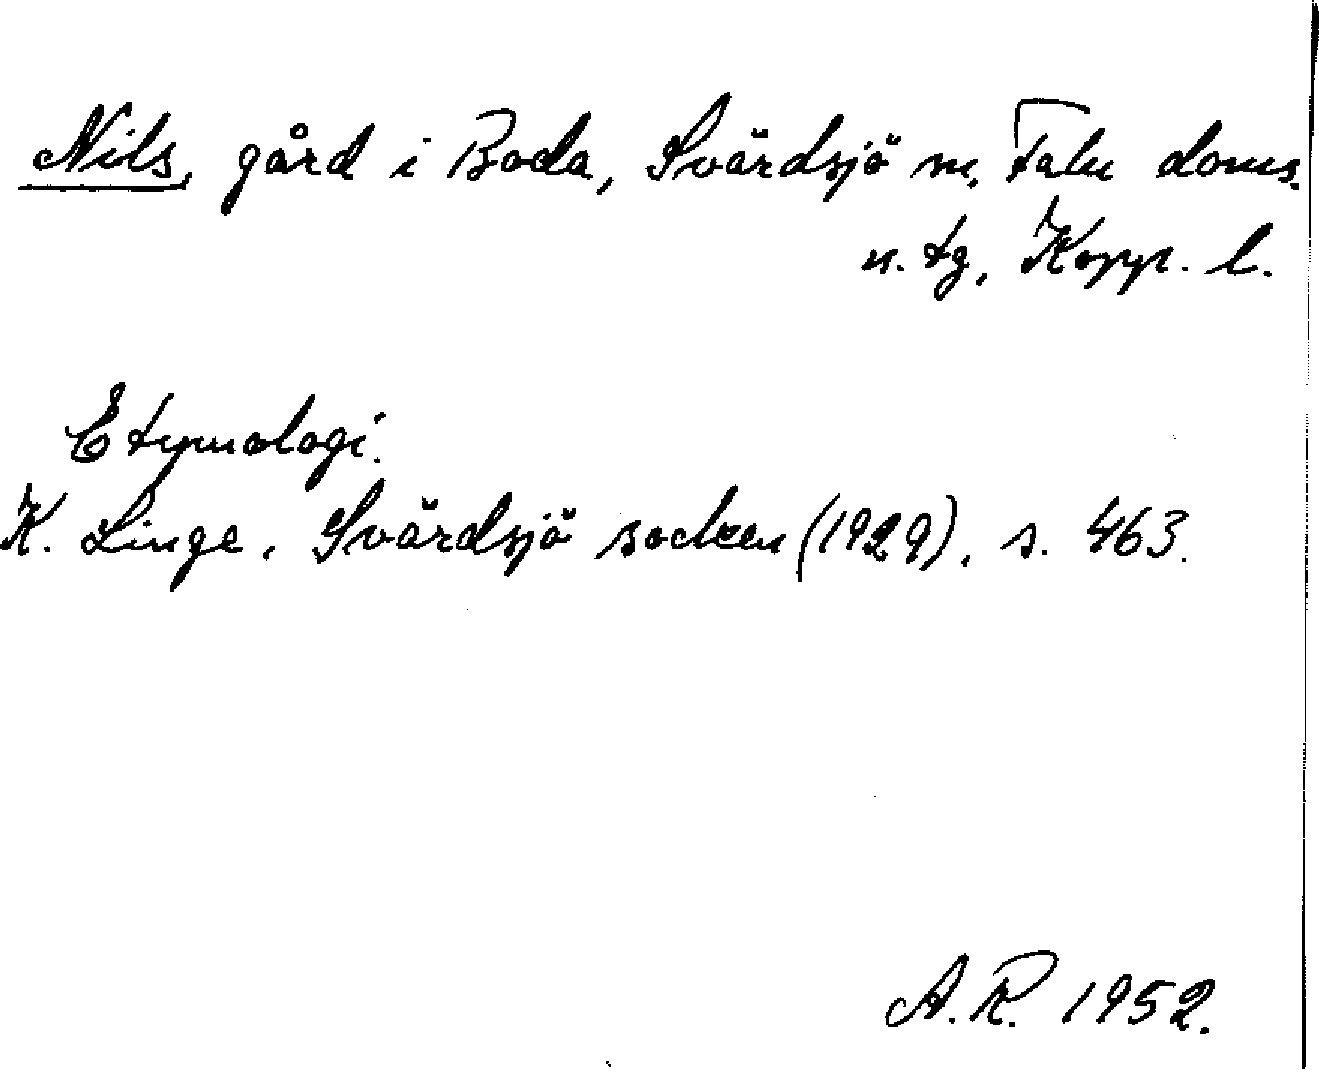 Nils, gård i Boda, Svärdsjö sn, Falu doms.
n. tg, Kopp. l.
Etymologi.
K. Linge, Svärdsjö socken (1929), s. 463.
A.R. 1952.